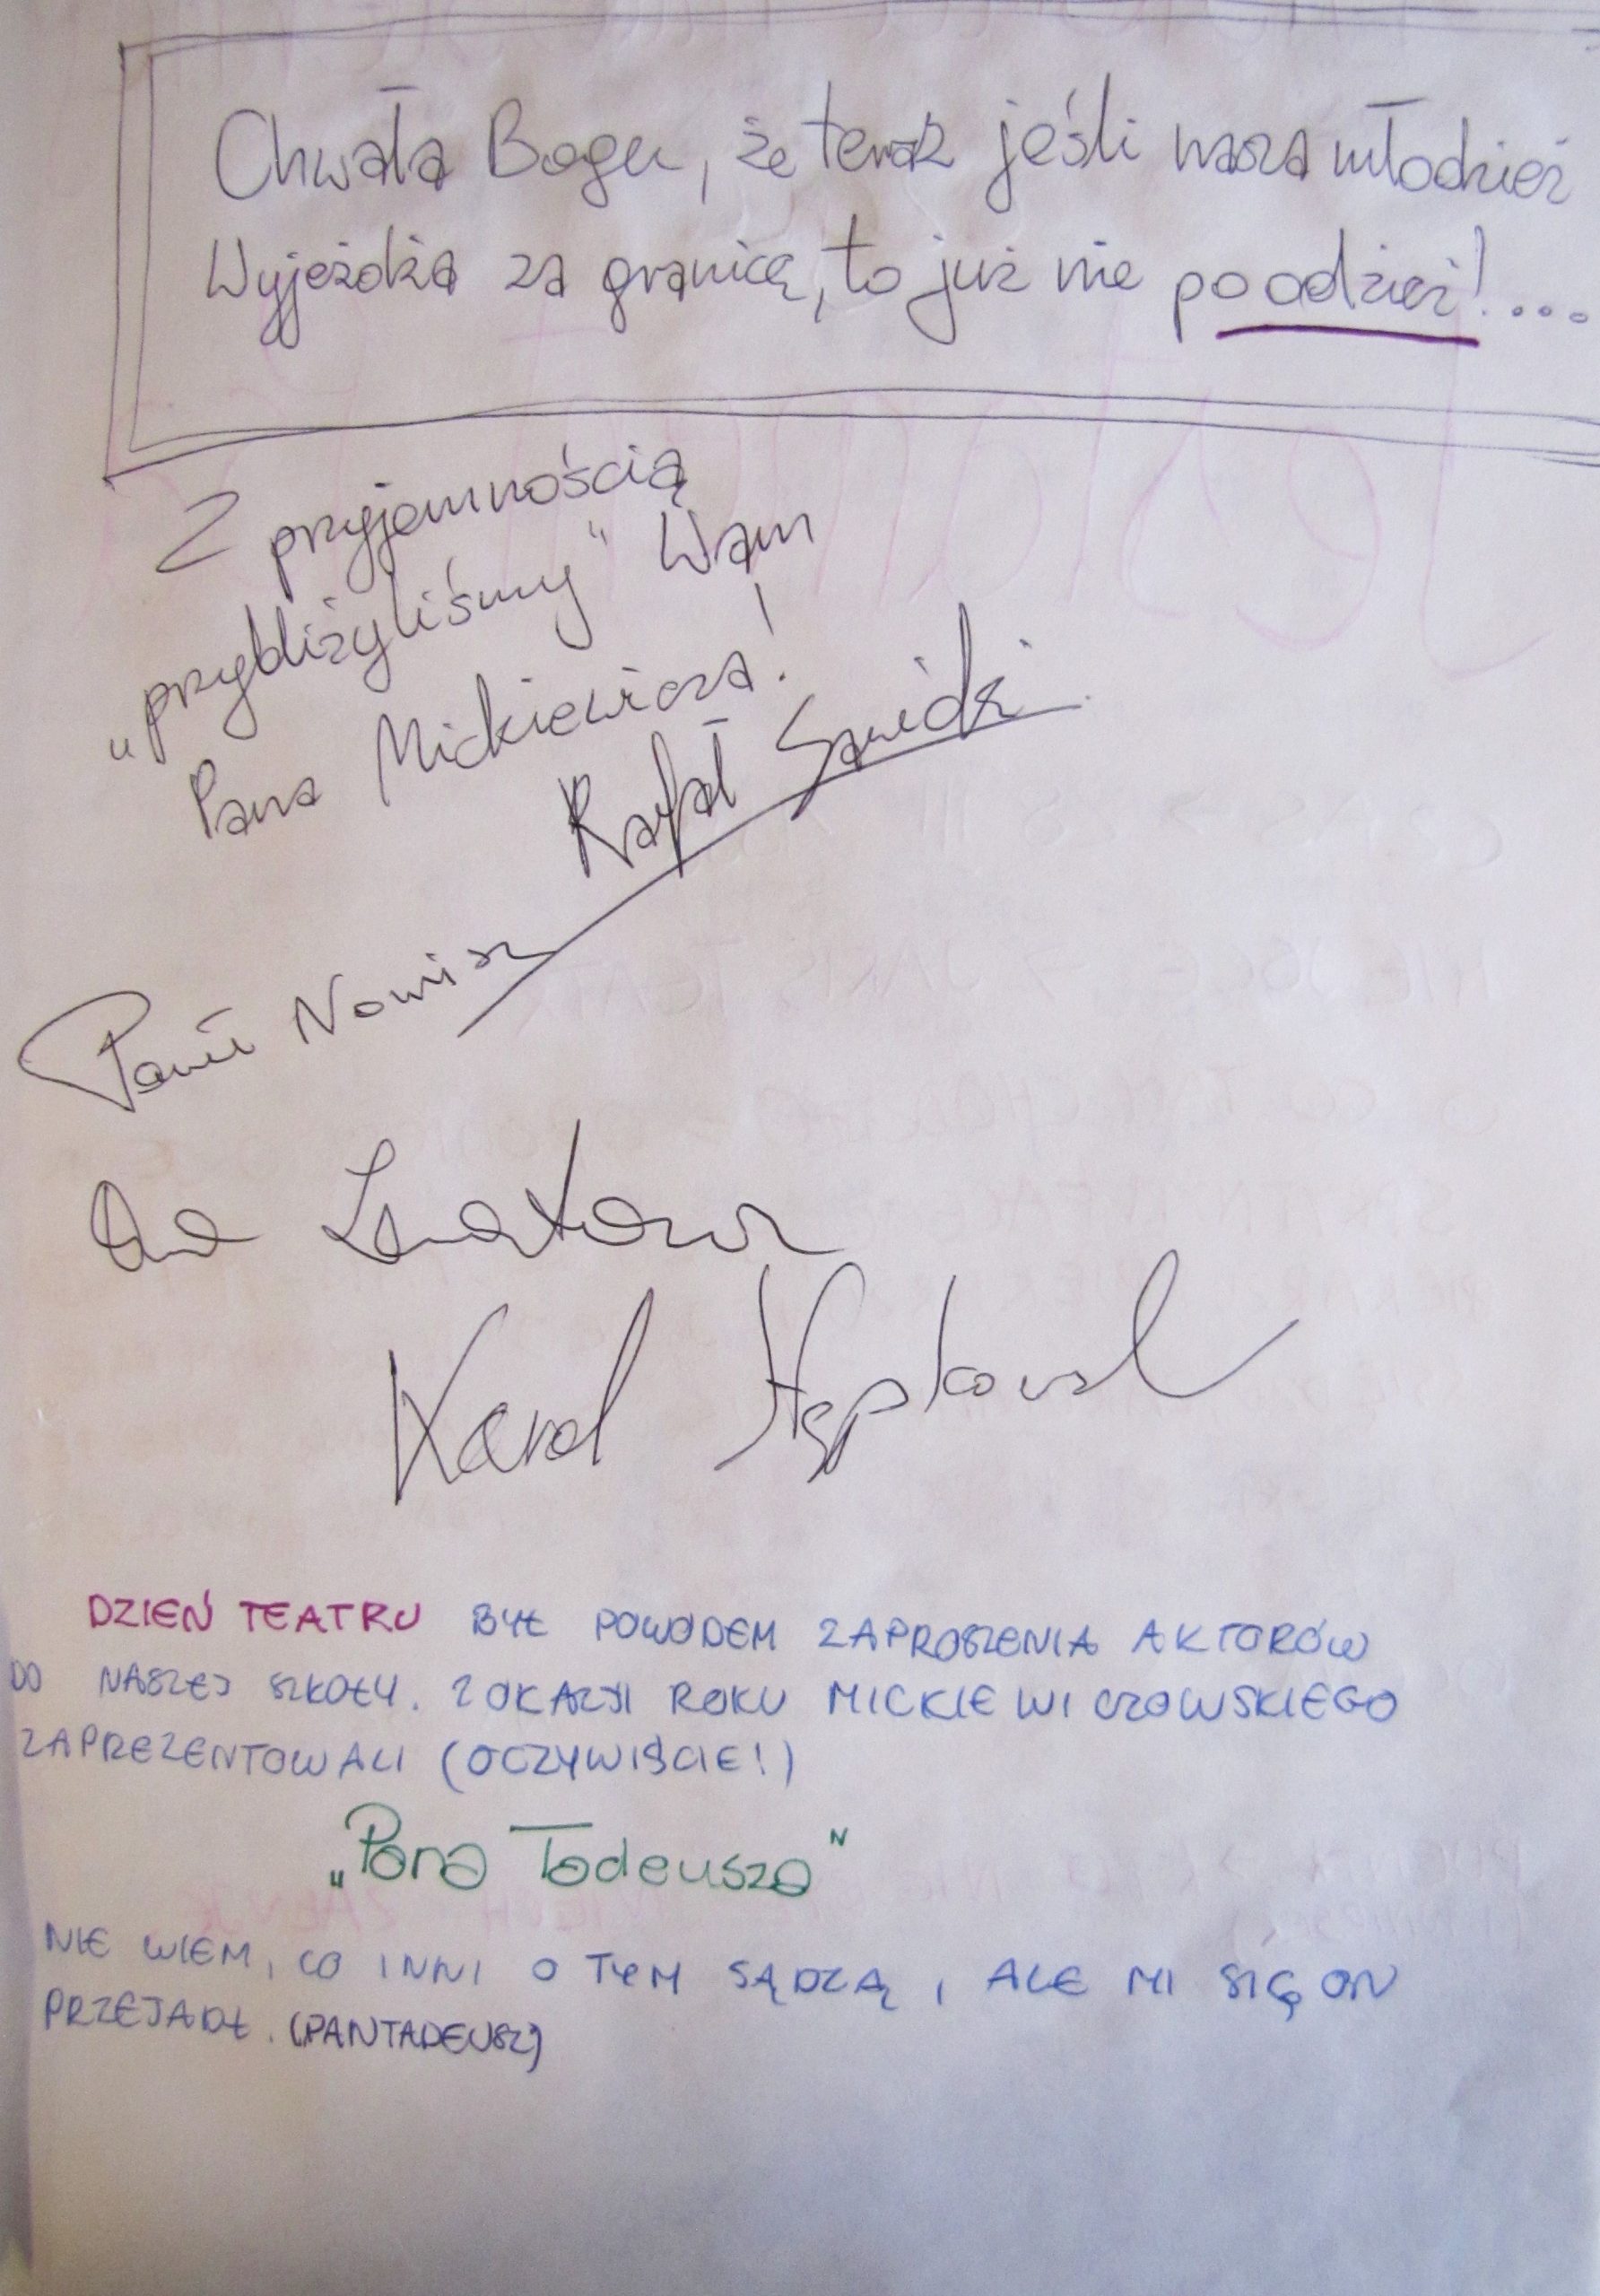 Chwała Bogu, że teraz jeśli nasza młodzież
Wyjeżdża za granicę, to już nie po odzież!...
Z przyjemnością
„przybliżyliśmy" Wam
Pana Mickiewicza!
Rafał Sawicki
Karol
DZIEŃ TEATRU BYŁ POWODEM ZAPROSZENIA AKTORÓW
DO NASZEJ SZKOŁY. Z OKAZJI ROKU MICKIEWICZOWSKIEGO
ZAPREZENTOWALI (OCZYWIŚCIE!)
„Pana Tadeusza"
NIE WIEM, CO INNI O TYM SĄDZĄ, ALE MI SIĘ ON
PRZEJADŁ. (PANTADEUSZ)